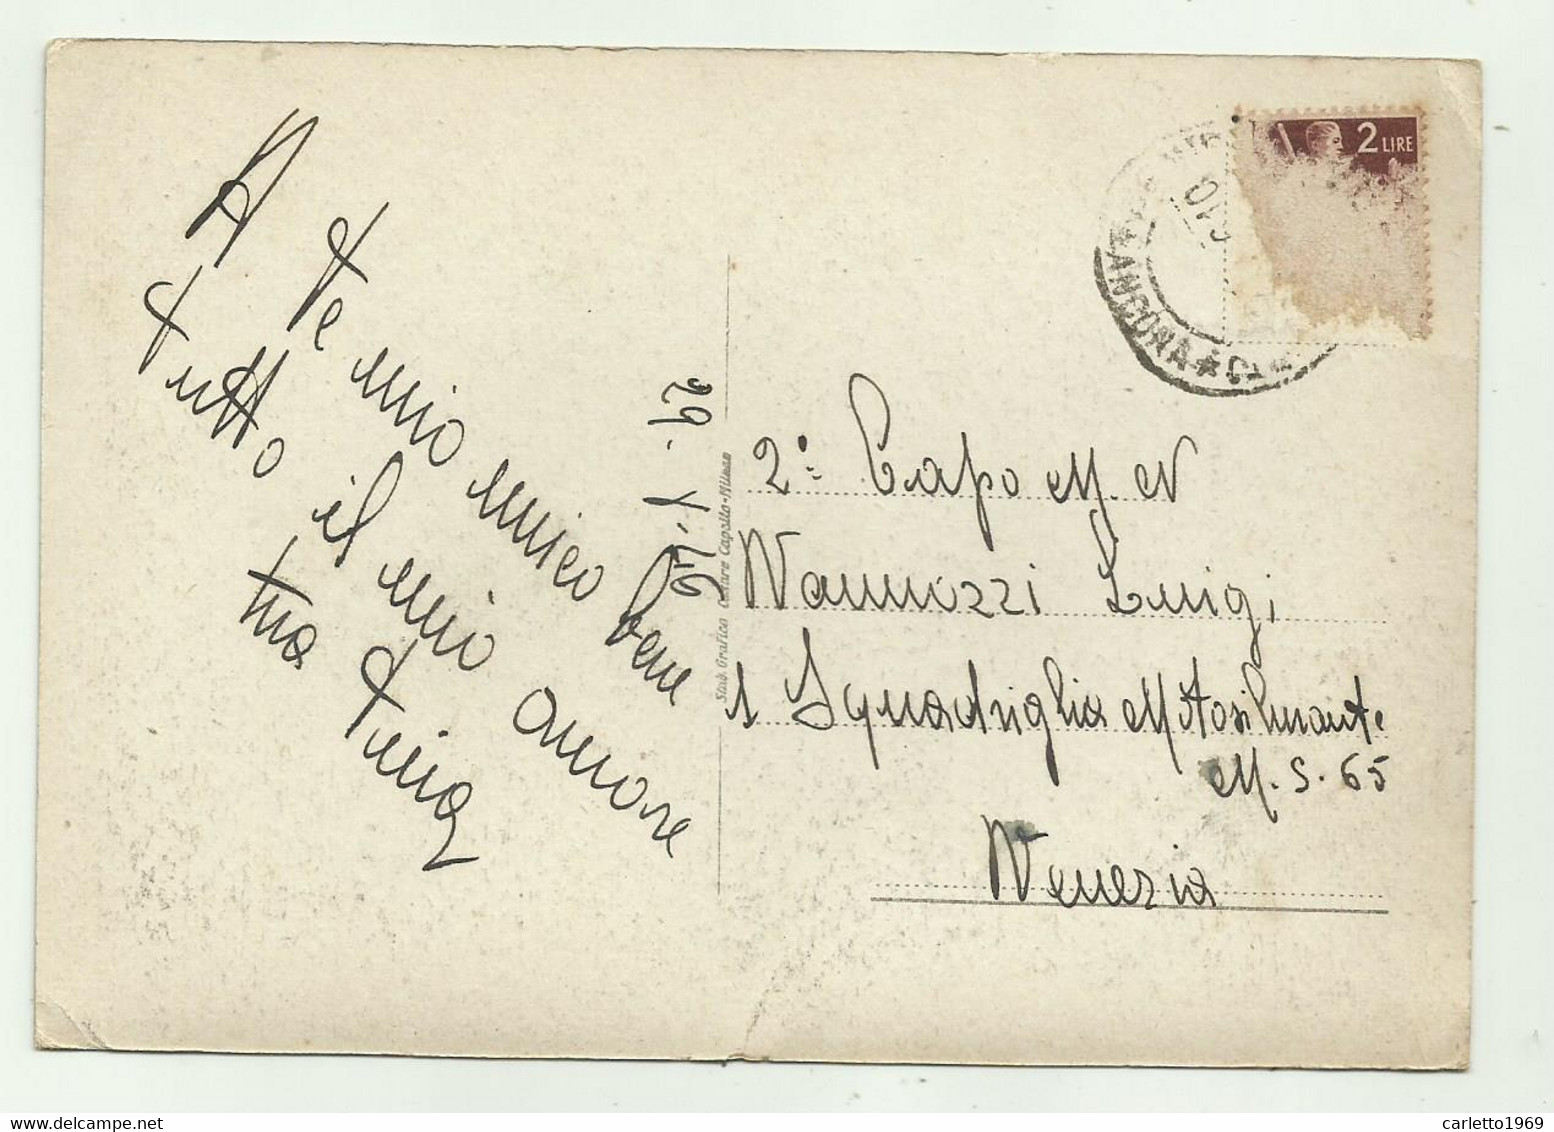 A te mio unico bene
tutto il mio amore
tua Tina
29. 1. 46
Stab. Grafico Cesare Capello-Milano
2 LIRE
ANCONA
2° Capo M. N
Vannozzi Luigi
1 Squadriglia Motosilurante
M. S. 65
Venezia
carletto1969